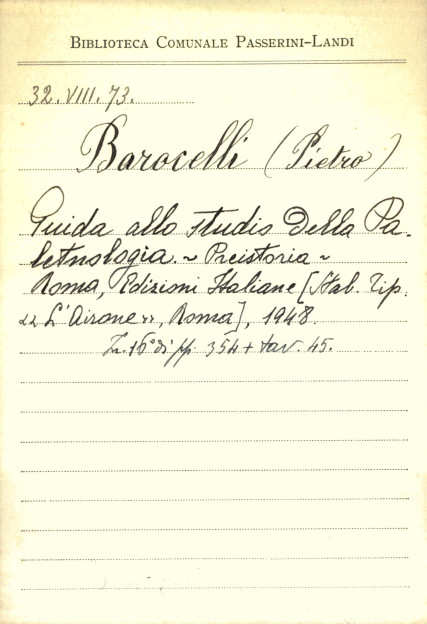 BIBLIOTECA COMUNALE PASSERINI-LANDI
32. VIII. 73.
Barocelli (Pietro)
Guida allo studio della Pa-
letnologia. ~ Preistoria ~
Roma, Edizioni Italiane [Stab. Tip.
«« L'Airone »», Roma], 1948.
In 16° di pp. 354 + tav. 45.